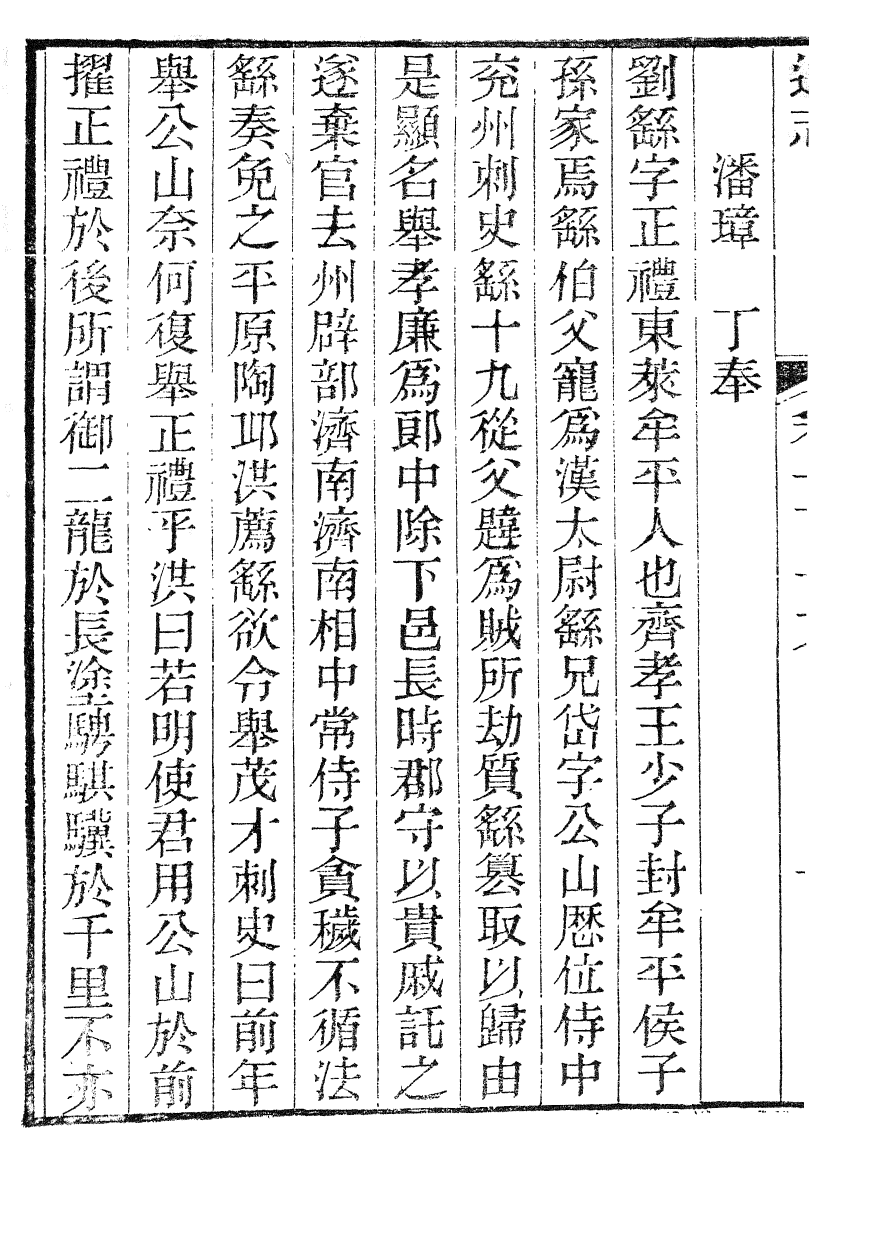 潘璋　丁奉
劉繇字正禮東萊牟平人也齊孝王少子封牟平侯子
孫家焉繇伯父寵爲漢太尉繇兄岱字公山歷位侍中
兖州刺史繇十九從父韙爲賊所劫質繇篡取以歸由
是顯名舉孝廉爲郎中除下邑長時郡守以貴戚託之
遂棄官去州辟部濟南濟南相中常侍子貪穢不循法
繇奏免之平原陶丘洪薦繇欲令舉茂才刺史曰前年
舉公山奈何復舉正禮乎洪曰若明使君用公山於前
擢正禮於後所謂御二龍於長塗騁騏驥於千里不亦